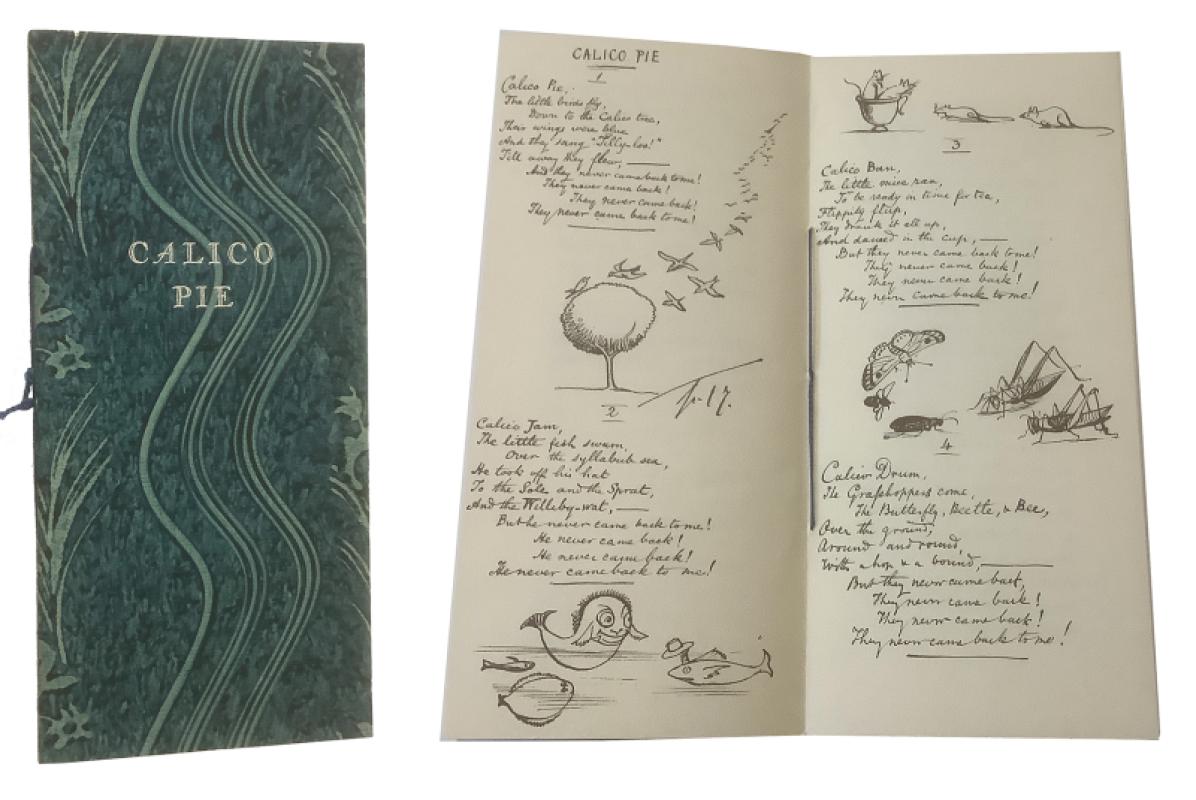 CALICO
PIE
CALICO PIE
1
Calico Pie,
The little birds fly,
Down to the Calico tree,
Their wings were blue
And they sang "Tilly-loo!"
Till away they flew, ——
And they never came back to me!
They never came back!
They never came back!
They never came back to me!
p. 17.
2
Calico Jam,
The little fish swam,
Over the syllabub sea,
He took off his hat
To the Sole and the Sprat,
And the Willeby-wat, ——
But he never came back to me!
He never came back!
He never came back!
He never came back to me!
3
Calico Ban,
The little mice ran,
To be ready in time for tea,
Flippity flup,
They drank it all up,
And danced in the cup, ——
But they never came back to me!
They never came back!
They never came back!
They never came back to me!
4
Calico Drum,
The Grasshoppers come,
The Butterfly, Beetle, & Bee,
Over the ground,
Around and round,
With a hop & a bound, ——
But they never came back,
They never came back!
They never came back!
They never came back to me!